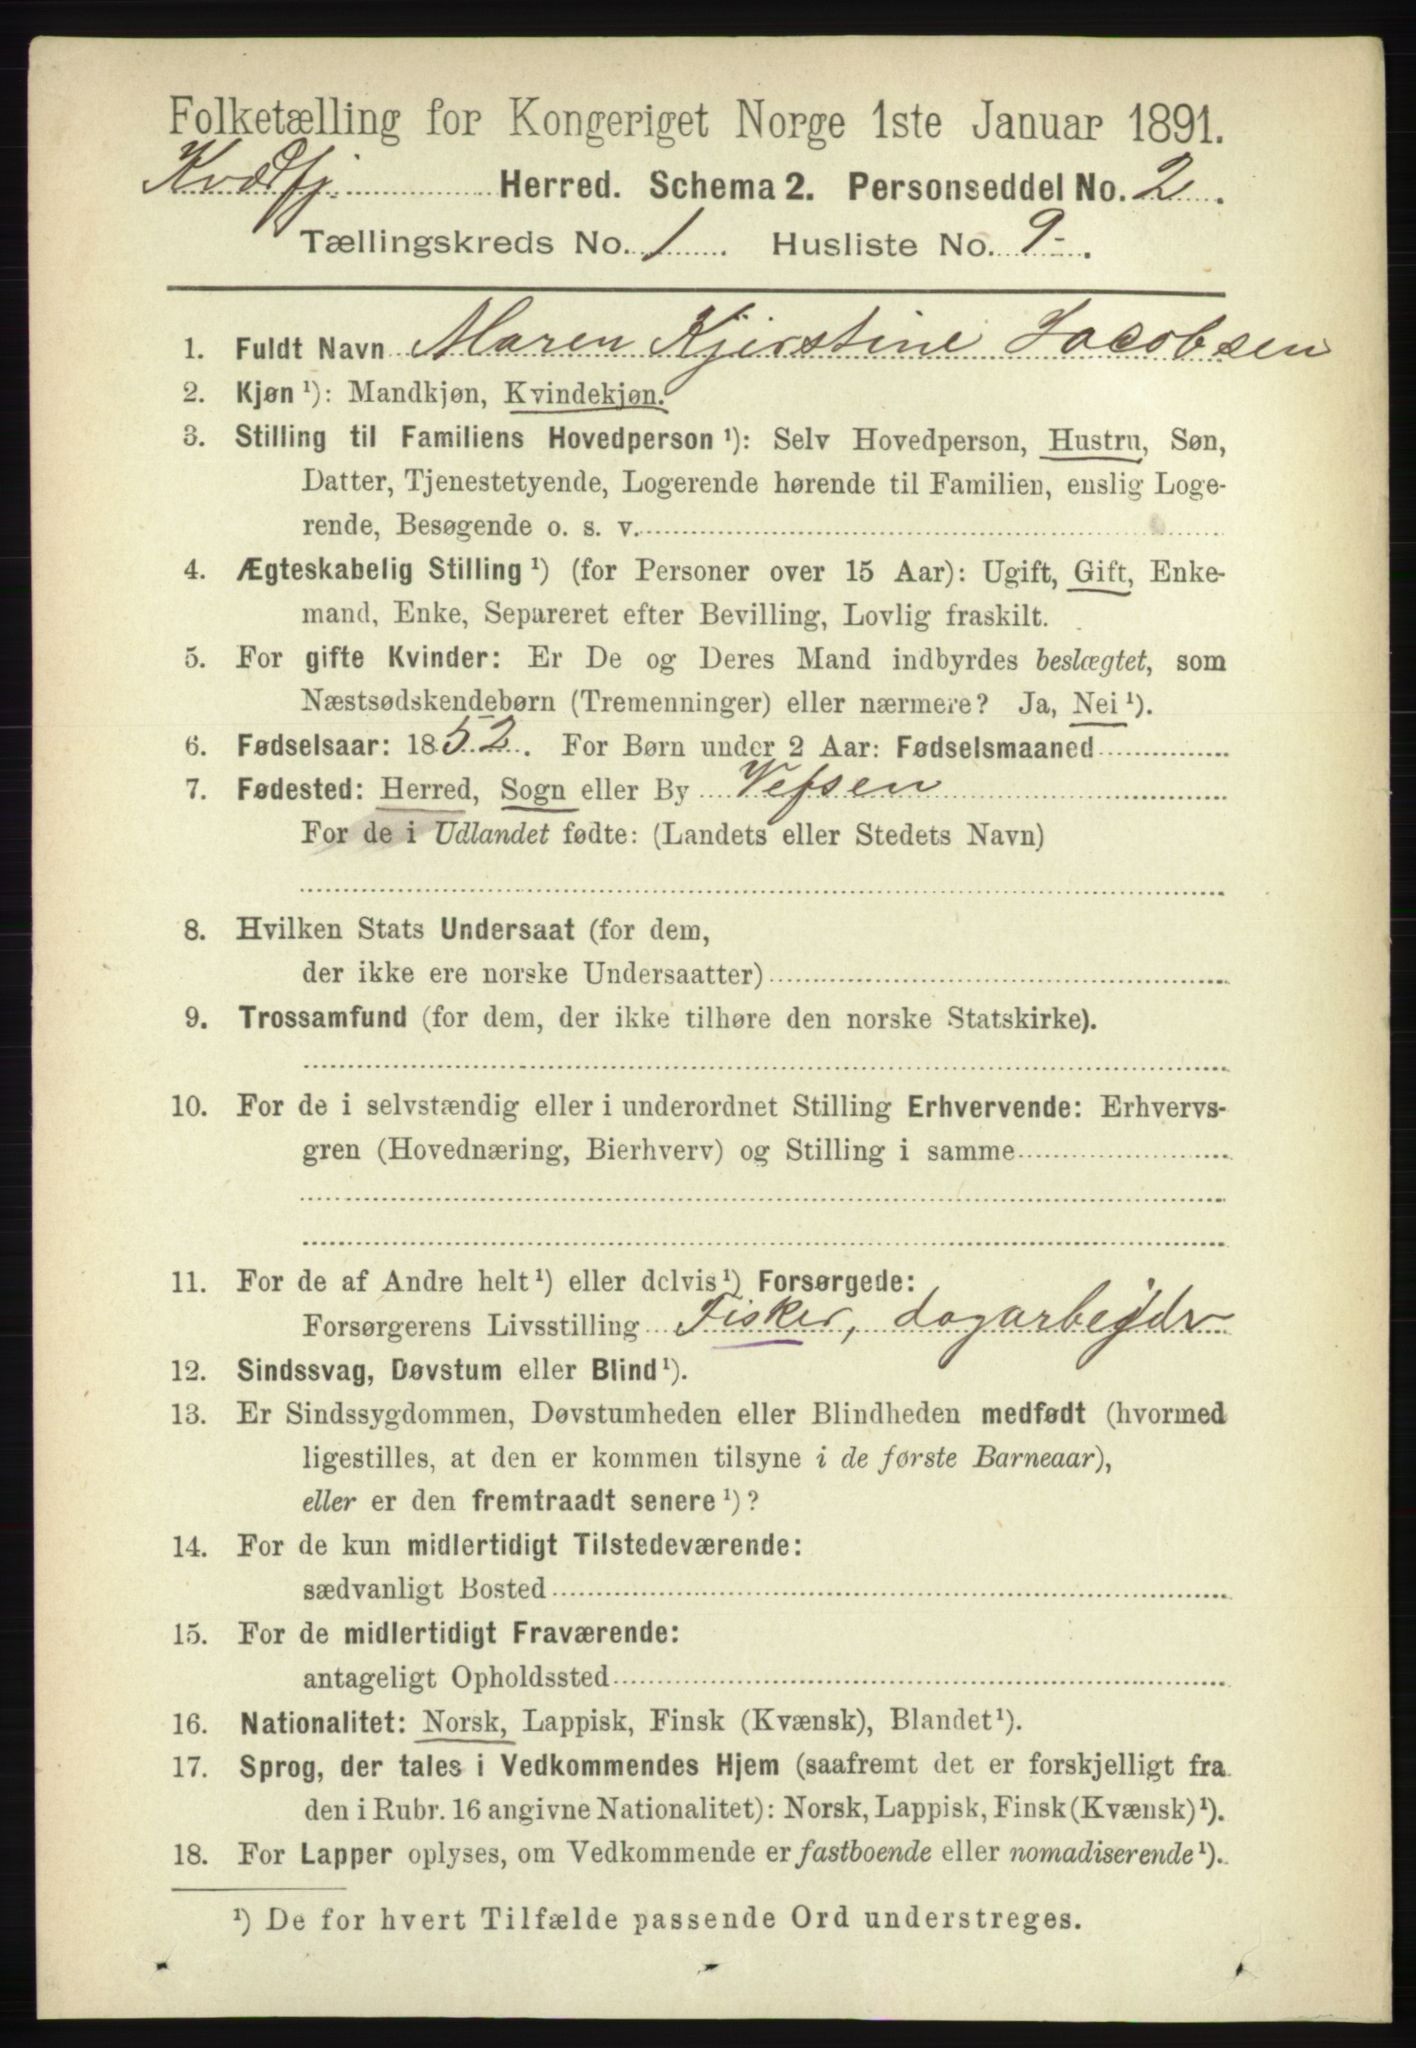 Folketælling for Kongeriget Norge 1ste Januar 1891.
Kvædfj. Herred. Schema 2. Personseddel No. 2.
Tællingskreds No. 1. Husliste No. 9-.
1. Fuldt Navn Maren Kjerstine Jacobsen
2. Kjøn ¹): Mandkjøn, Kvindekjøn.
3. Stilling til Familiens Hovedperson ¹): Selv Hovedperson, Hustru, Søn,
Datter, Tjenestetyende, Logerende hørende til Familien, enslig Loge-
rende, Besøgende o. s. v.
4. Ægteskabelig Stilling ¹) (for Personer over 15 Aar): Ugift, Gift, Enke-
mand, Enke, Separeret efter Bevilling, Lovlig fraskilt.
5. For gifte Kvinder: Er De og Deres Mand indbyrdes beslægtet, som
Næstsødskendebørn (Tremenninger) eller nærmere? Ja, Nei ¹).
6. Fødselsaar: 1852. For Børn under 2 Aar: Fødselsmaaned
7. Fødested: Herred, Sogn eller By Vefsen
For de i Udlandet fødte: (Landets eller Stedets Navn)
8. Hvilken Stats Undersaat (for dem,
der ikke ere norske Undersaatter)
9. Trossamfund (for dem, der ikke tilhøre den norske Statskirke).
10. For de i selvstændig eller i underordnet Stilling Erhvervende: Erhvervs-
gren (Hovednæring, Bierhverv) og Stilling i samme
11. For de af Andre helt ¹) eller delvis ¹) Forsørgede:
Forsørgerens Livsstilling Fisker, dagarbejdr
12. Sindssvag, Døvstum eller Blind ¹).
13. Er Sindssygdommen, Døvstumheden eller Blindheden medfødt (hvormed
ligestilles, at den er kommen tilsyne i de første Barneaar),
eller er den fremtraadt senere ¹)?
14. For de kun midlertidigt Tilstedeværende:
sædvanligt Bosted
15. For de midlertidigt Fraværende:
antageligt Opholdssted
16. Nationalitet: Norsk, Lappisk, Finsk (Kvænsk), Blandet ¹).
17. Sprog, der tales i Vedkommendes Hjem (saafremt det er forskjelligt fra
den i Rubr. 16 angivne Nationalitet): Norsk, Lappisk, Finsk (Kvænsk) ¹).
18. For Lapper oplyses, om Vedkommende er fastboende eller nomadiserende ¹).
¹) De for hvert Tilfælde passende Ord understreges.